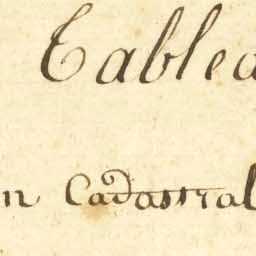 Tablea
n Cadastral